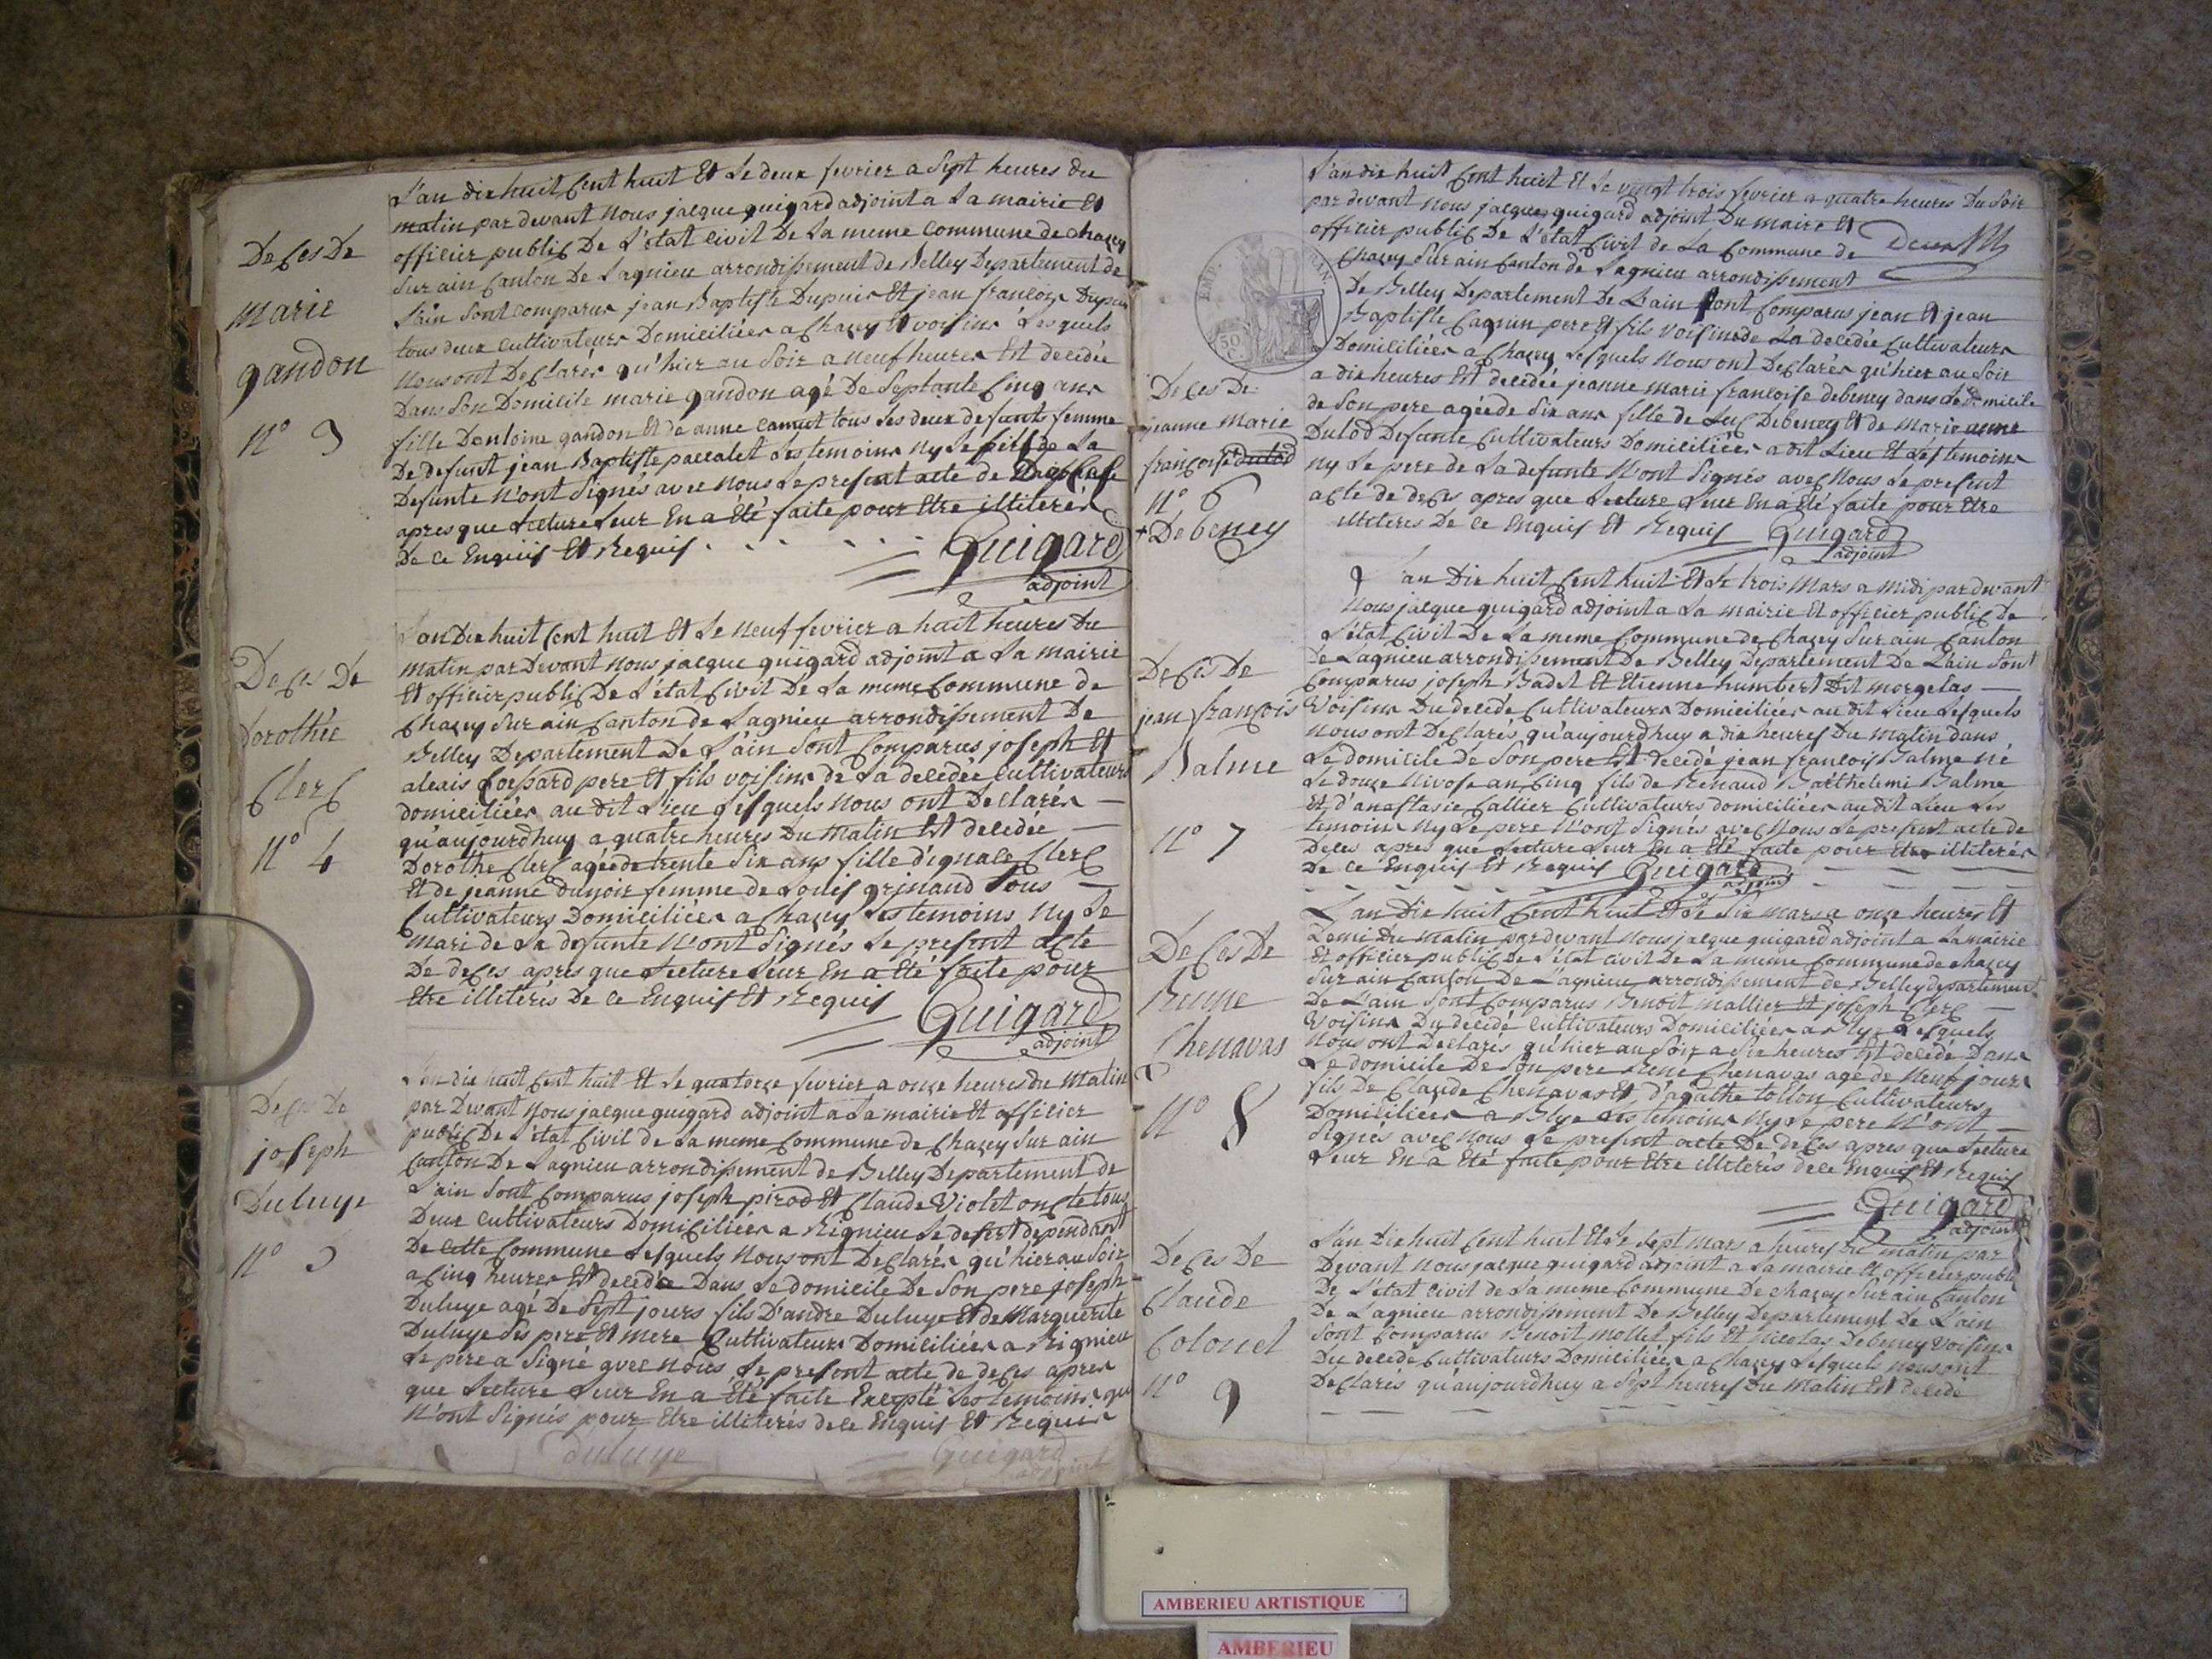 L'an dix huit Cent huit Et Le deux fevrier a Sept heures du
matin par devant Nous jacque guigard adjoint a La mairie Et
officier public De L'état Civil De La meme Commune de chazey
Sur ain Canton De Lagnieu arrondissement de Belley Departement de
L'ain Sont Comparus jean Baptiste Dupuis Et jean francois Dupuis
tous deux Cultivateurs Domiciliées a Chazey Et voisins Lesquels
Nous ont Declarés qu'hier au Soir a Neuf heures Est decedée
Dans Son Domicile marie gandon agé De Septante Cinq ans
fille Dantoine gandon Et de anne camut tous Les deux defunts femme
De defunt jean Baptiste paccalet Les temoins Ny Le fils de La
Defunte N'ont Signés avec Nous Le present acte de
apres que Lecture Leur En a Eté faite pour Etre illiterés
De Ce Enquis Et Requis
Guigard
adjoint
DeCes De
marie
gandon
N° 3
L'an Dix huit Cent huit Et Le Neuf fevrier a huit heures Du
matin par Devant Nous jacque guigard adjoint a La mairie
Et officier public De L'état Civil De La meme Commune de
Chazey Sur ain Canton de Lagnieu arrondissement De
Belley Departement De L'ain Sont Comparus joseph Et
alexis Cossard pere Et fils voisins de La decedée Cultivateurs
domiciliées au dit Lieu Lesquels Nous ont Declarés
qu'aujourdhuy a quatre heures Du Matin Est decedée
Dorothe Clerc agée de trente Six ans fille d'ignace Clerc
Et de jeanne dunoir femme de Louis grinand Tous
Cultivateurs Domiciliées a Chazey Les temoins Ny Le
mari de La defunte N'ont Signés Le present acte
De deCes apres que Lecture Leur En a Eté faite pour
Etre illiterés De Ce Enquis Et Requis
Guigard
adjoint
DeCes De
Dorothée
Clerc
N° 4
L'an dix huit Cent huit Et Le quatorze fevrier a onze heures du Matin
par Devant Nous jacque guigard adjoint a La mairie Et officier
public De L'état Civil de La meme Commune de Chazey Sur ain
Canton De Lagnieu arrondissement de Belley Departement de
L'ain Sont Comparus joseph pirod Et Claude Violet oncle tous
Deux Cultivateurs Domiciliées a Rignieu Le desert dependant
De Cette Commune Lesquels Nous ont Declarés qu'hier au Soir
a Cinq heures Est decedé Dans Le domicile De Son pere joseph
Duluye agé De Sept jours fils D'andre Duluye Et de Marguerite
Duluye Ses pere Et mere Cultivateurs Domiciliées a Rignieu
Le pere a Signé avec Nous Le present acte de deCes apres
que Lecture Leur En a Eté faite Excepté Les temoins qui
N'ont Signés pour Etre illiterés de Ce Enquis Et Requis
Duluye Guigard
adjoint
DeCes De
joseph
Duluye
N°
L'an dix huit Cent huit Et Le vingt trois fevrier a quatre heures Du Soir
par devant Nous jacques guigard adjoint Du maire Et
officier public De L'état Civil de La Commune de
Chazey Sur ain Canton de Lagnieu arrondissement
De Belley Departement De L'ain Sont Comparus jean Et jean
Baptiste Cagnin pere Et fils voisins de La decedée Cultivateurs
Domiciliées a Chazey Lesquels Nous ont Declarés qu'hier au Soir
a dix heures Est decedée jeanne marie francoise debeney dans Le Domicile
de Son pere agée de Six ans fille de Luc Debeney Et de Marie anne
Dulod Defunte Cultivateurs Domiciliées a dit Lieu Et Les temoins
Ny Le pere de La defunte N'ont Signés avec Nous Le present
acte de deCes apres que Lecture Leur En a Eté faite pour Etre
illiteres De Ce Enquis Et Requis Guigard
adjoint
EMP. FRAN.
50
C.
DeCes De
jeanne marie
françoise dulod
N° 6
+ Debeney
L'an Dix huit Cent huit Et Le trois Mars a Midi par devant
Nous jacque guigard adjoint a La mairie Et officier public De
L'état Civil De La meme Commune de Chazey Sur ain Canton
De Lagnieu arrondissement De Belley Departement De L'ain Sont
Comparus joseph Badet Et Etienne humbert Dit morgelas
Voisins Du decedé Cultivateurs Domiciliées au dit Lieu Lesquels
Nous ont Declarés qu'aujourdhuy a dix heures Du Matin dans
Le domicile de Son pere Est decedé jean francois Balme Né
Le douze Nivose an Cinq fils de Renaud Barthelemi Balme
Et d'anastasie Callier Cultivateurs domiciliées au dit Lieu Les
temoins Ny Le pere N'ont Signés avec Nous Le present acte de
deCes apres que Lecture Leur En a Eté faite pour Etre illiterés
De Ce Enquis Et Requis Guigard
adjoint
DeCes De
jean françois
Balme
N° 7
L'an Dix huit Cent huit Et Le Six mars a onze heures Et
Demi Du matin par devant Nous jacque guigard adjoint a La mairie
Et officier public De L'état Civil De La meme Commune de chazey
Sur ain Canton De Lagnieu arrondissement de Belley departement
De L'ain Sont Comparus Benoit mallier Et joseph Clerc
Voisins Du decedé Cultivateurs Domiciliées a Blye Lesquels
Nous ont Declarés qu'hier au Soir a Six heures Est decedé Dans
Le domicile De Son pere Rene Chenavas agé de Neuf jours
fils De Claude Chenavas Et d'agathe tollon Cultivateurs
Domiciliées a Blye Les temoins Ny Le pere N'ont
Signés avec Nous Le present acte De deCes apres que Lecture
Leur En a Eté faite pour Etre illiterés de Ce Enquis Et Requis
Guigard
adjoint
DeCes De
Chenavas
N° 8
L'an Dix huit Cent huit Et Le Sept mars a heures Du matin par
Devant Nous jacque guigard adjoint a La mairie Et officier public
De L'état Civil de La meme Commune De chazey Sur ain Canton
De Lagnieu arrondissement De Belley Departement De L'ain
Sont Comparus Benoit Mollet fils Et Nicolas Debeney Voisins
Du decedé Cultivateurs Domiciliées a Chazey Lesquels Nous ont
Declarés qu'aujourdhuy a Sept heures Du Matin Est decedé
DeCes De
Claude
Colonel
N° 9
AMBERIEU ARTISTIQUE
AMBERIEU